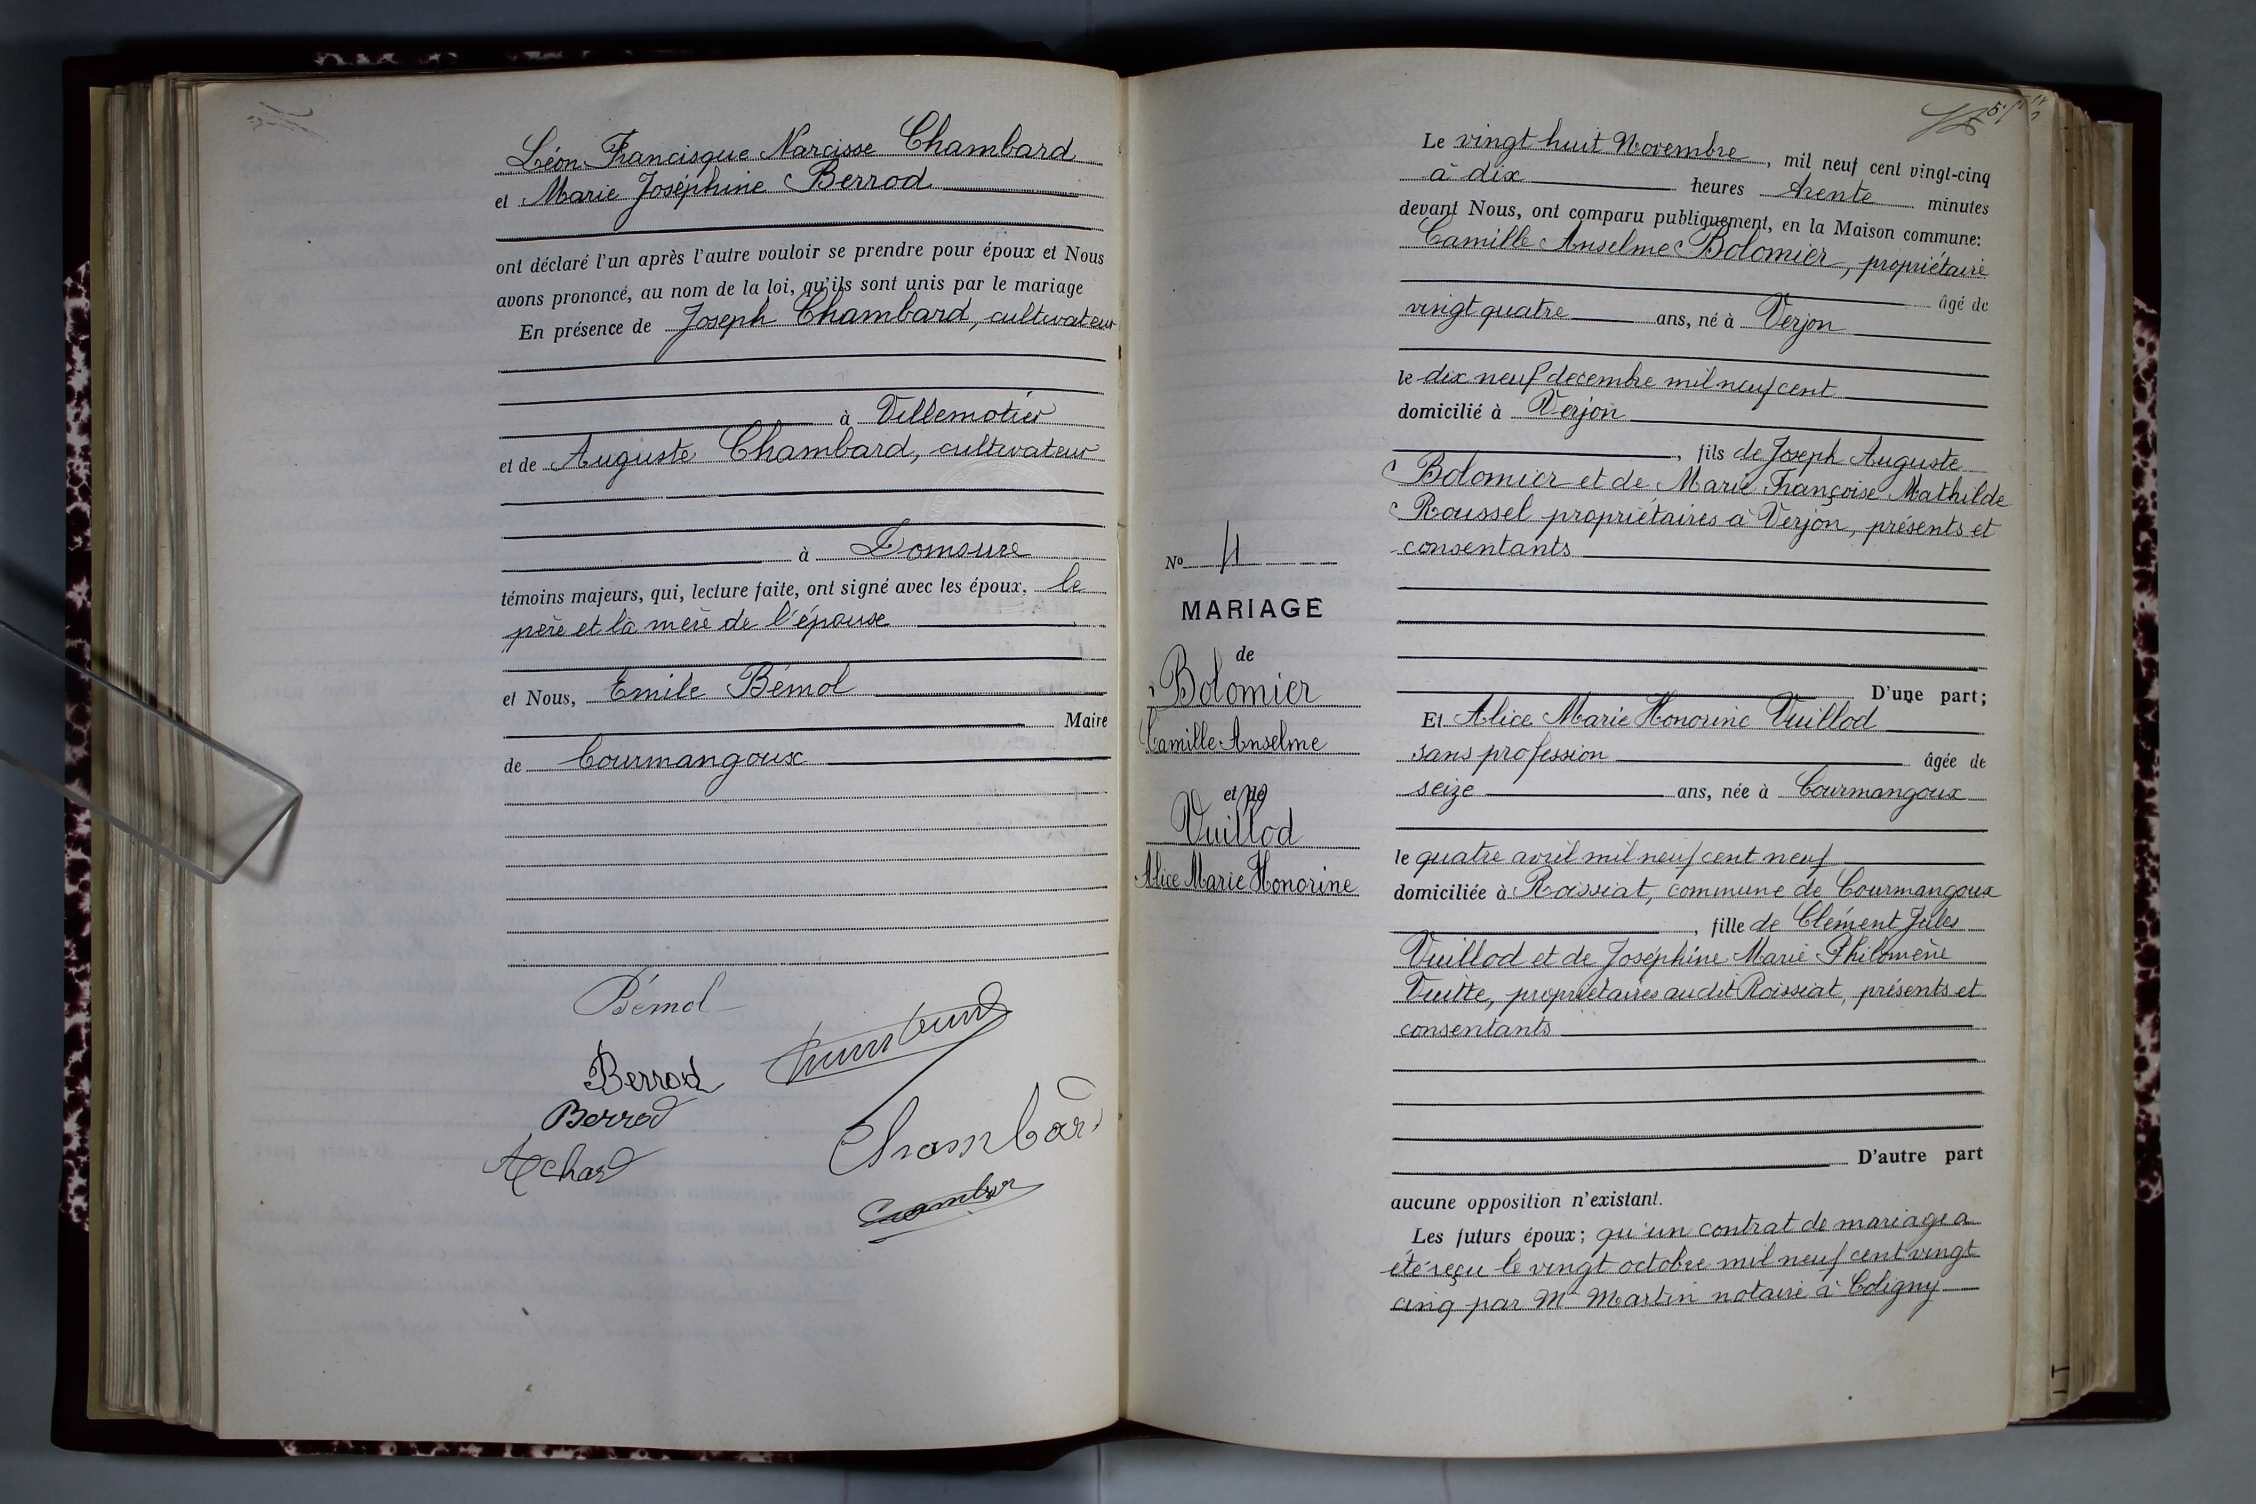 Léon Francisque Narcisse Chambard
et Marie Joséphine Berrod
ont déclaré l'un après l'autre vouloir se prendre pour époux et Nous
avons prononcé, au nom de la loi, qu'ils sont unis par le mariage
En présence de Joseph Chambard, cultivateur
à Villemotier
et de Auguste Chambard, cultivateur
à Domsure
témoins majeurs, qui, lecture faite, ont signé avec les époux, le
père et la mère de l'épouse
et Nous, Emile Bémol
Maire
de Courmangoux
Bémol
Chambard
Berrod
Berrod
Chambard
Achard
N° 4
MARIAGE
de
Bolomier
Camille Anselme
et de
Vuillod
Alice Marie Honorine
Le vingt huit Novembre, mil neuf cent vingt-cinq
à dix heures trente minutes
devant Nous, ont comparu publiquement, en la Maison commune:
Camille Anselme Bolomier, propriétaire
âgé de
vingt quatre ans, né à Verjon
le dix neuf décembre mil neuf cent
domicilié à Verjon
, fils de Joseph Auguste
Bolomier et de Marie Françoise Mathilde
Roussel propriétaires à Verjon, présents et
consentants
D'une part;
Et Alice Marie Honorine Vuillod
sans profession âgée de
seize ans, née à Courmangoux
le quatre avril mil neuf cent neuf
domiciliée à Roissiat, commune de Courmangoux
, fille de Clément Jules
Vuillod et de Joséphine Marie Philomène
Vuitte, propriétaires audit Roissiat, présents et
consentants
D'autre part
aucune opposition n'existant.
Les futurs époux; qu'un contrat de mariage a
été reçu le vingt octobre mil neuf cent vingt
cinq par Me Martin notaire à Coligny